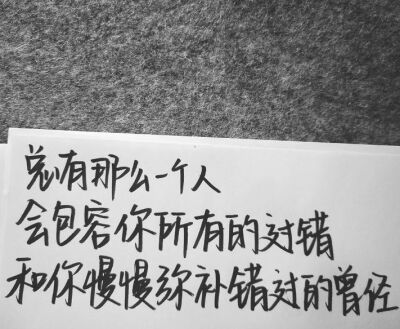 总有那么一个人
会包容你所有的过错
和你慢慢弥补错过的曾经